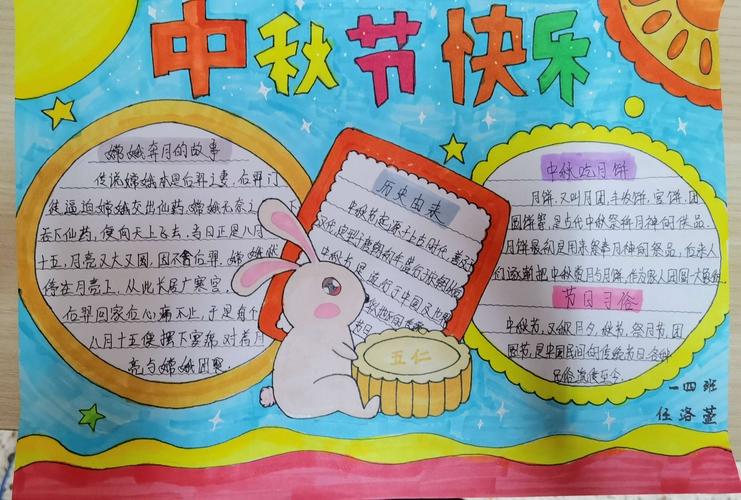 中秋节快乐
嫦娥奔月的故事
传说嫦娥本是后羿之妻,后羿门
徒逼迫嫦娥交出仙药,嫦娥无奈之
吞下仙药,便向天上飞去,当日正是八月
十五,月亮又大又圆,因不舍后羿,嫦娥就
停在月亮上,从此长居广寒宫,
后羿回家后心痛不止,于是每个
八月十五便摆下宴席对着月
亮与嫦娥团聚。
历史由来
中秋节起源于上古时代,普及于
汉代,定型于唐朝
中秋节
流行于中国
五仁
中秋吃月饼
月饼,又叫月团、丰收饼、宫饼、团
圆饼等,是古代中秋祭拜月神的供品。
月饼最初是用来祭奉月神的祭品,后来人
们逐渐把中秋赏月与月饼,作为家人团圆一大象征
节日习俗
中秋节,又称月夕、秋节、祭月节、团
圆节,是中国民间的传统节日
民俗流传至今。
一四班
任洛萱